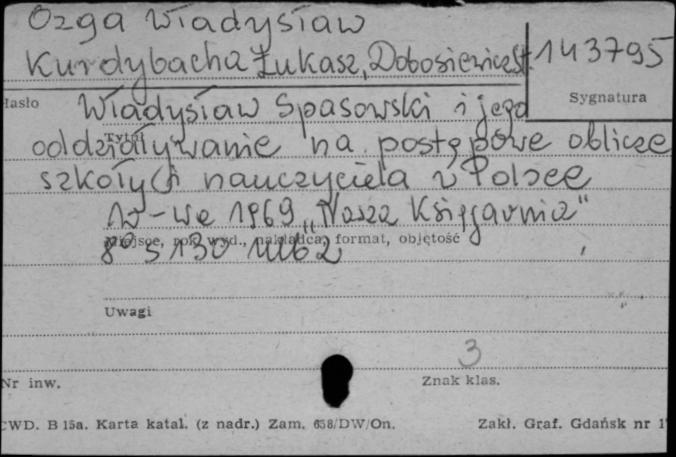 Ozga Władysław
Kurdybacha Łukasz, Dobosiewicz St.
143795
Hasło
Sygnatura
Władysław Spasowski i jego
Tytuł
oddziaływanie na postępowe oblicze
szkoły i nauczyciela w Polsce
W-we 1969 "Nasza Księgarnia"
Miejsce, rok wyd., nakładca, format, objętość
8° s 130
Uwagi
3
Nr inw.
Znak klas.
CWD. B 15a. Karta katal. (z nadr.) Zam. 658/DW/On.
Zakł. Graf. Gdańsk nr 1